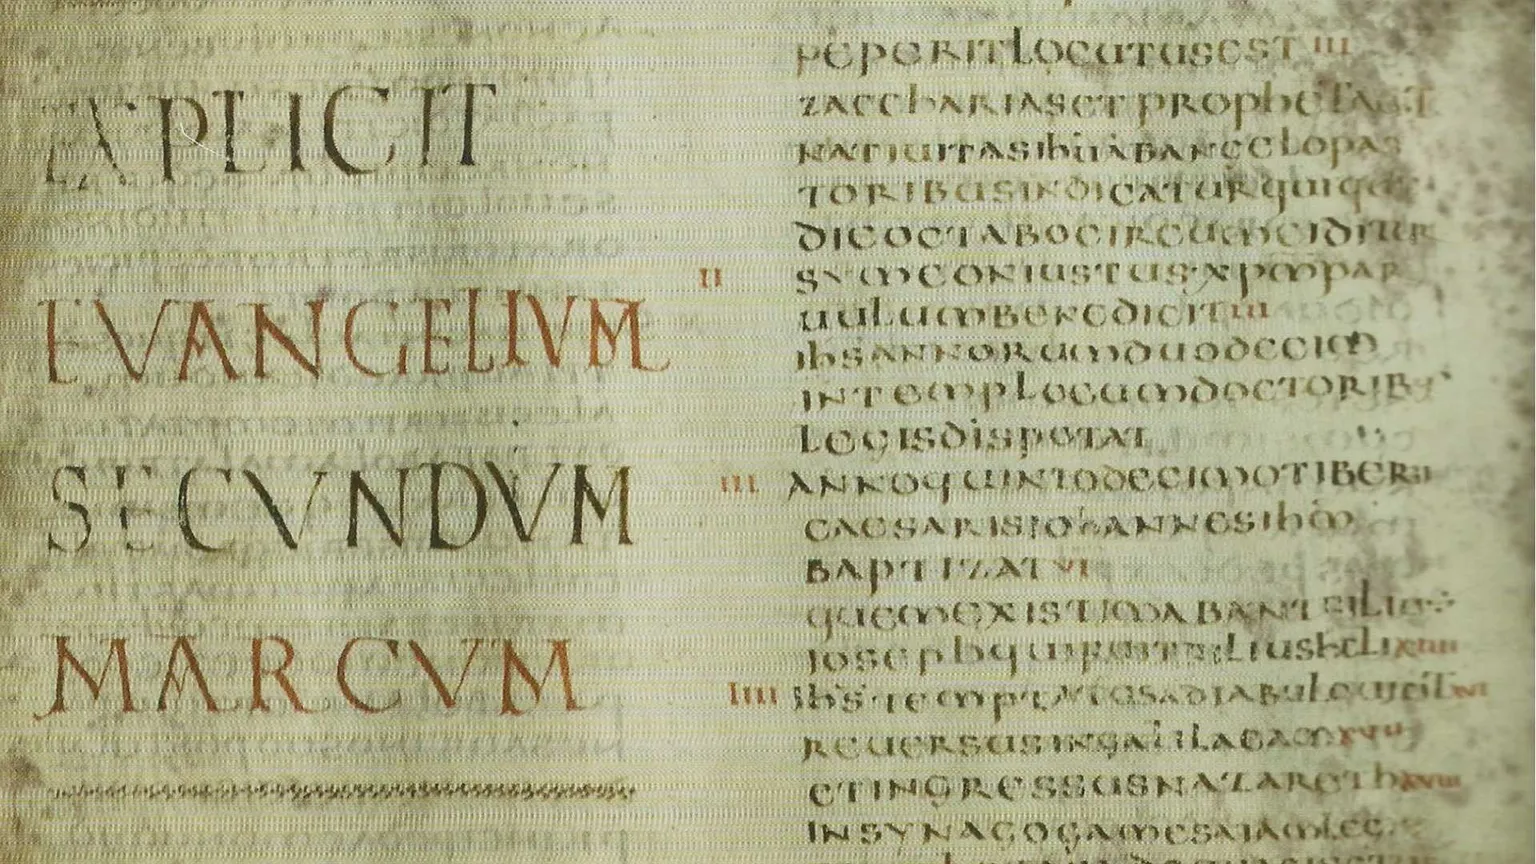 EXPLICIT
EVANGELIVM
SECVNDVM
MARCVM
PEPERITLOCUTUSEST III
ZACCHARIASETPROPHETAUIT
NATIUITASIHUABANGELOPAS
TORIBUSINDICATURQUIQUE
DIEOCTABOCIRCUMCIDITUR
II SYMEONIUSTUSXPMPAR
UULUMBENEDICIT IIII
IHSANNORUMDUODECIM
INTEMPLOCUMDOCTORIB
LEGISDISPUTAT
III ANNOQUINTODECIMOTIBERII
CAESARISIOHANNESIHM
BAPTIZAT VI
QUEMEXISTIMABANTFILIUM
IOSEPHQUIFUITFILIUSHELI XIIII
IIII IHSTEMPTATUSADIABULO
REUERSUSINGALILAEAM XVII
ETINGRESSUSNAZARETH XVIII
INSYNAGOGAMESAIAMLEG